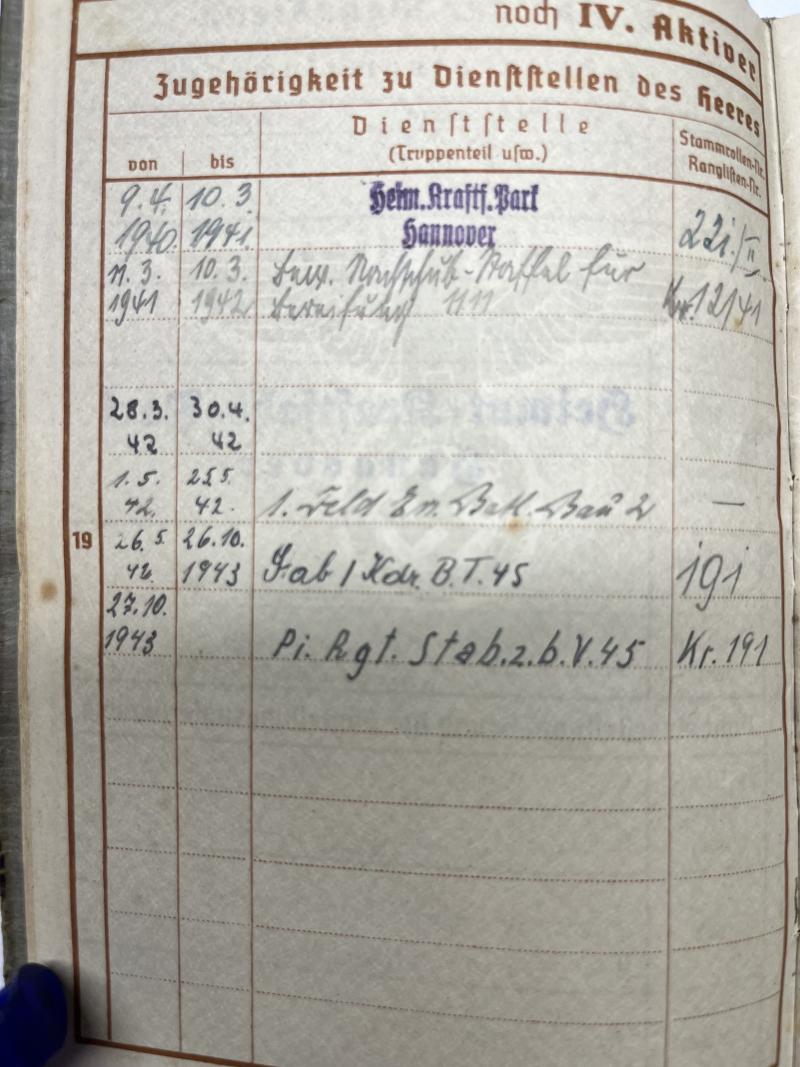 noch IV. Aktiver
Zugehörigkeit zu Dienststellen des Heeres
von
bis
Dienststelle
(Truppenteil usw.)
Stammrollen-Nr.
Ranglisten-Nr.
9.4. 10.3.
1940. 1941.
Heim.Kraftf.Park
Hannover
22i./II
11.3. 10.3. Bew. Nachschub-Staffel für
1941 1942 Bereifung 1111 Kr. 12/41
28.3. 30.4.
42 42
1.5. 25.5.
42. 42. 1. Feld Ers. Batl. Bau 2 —
19
26.5. 26.10.
42 1943 Stab / Kdr. B.T. 45 191
27.10.
1943 Pi. Rgt. Stab.z.b.V.45 Kr. 191